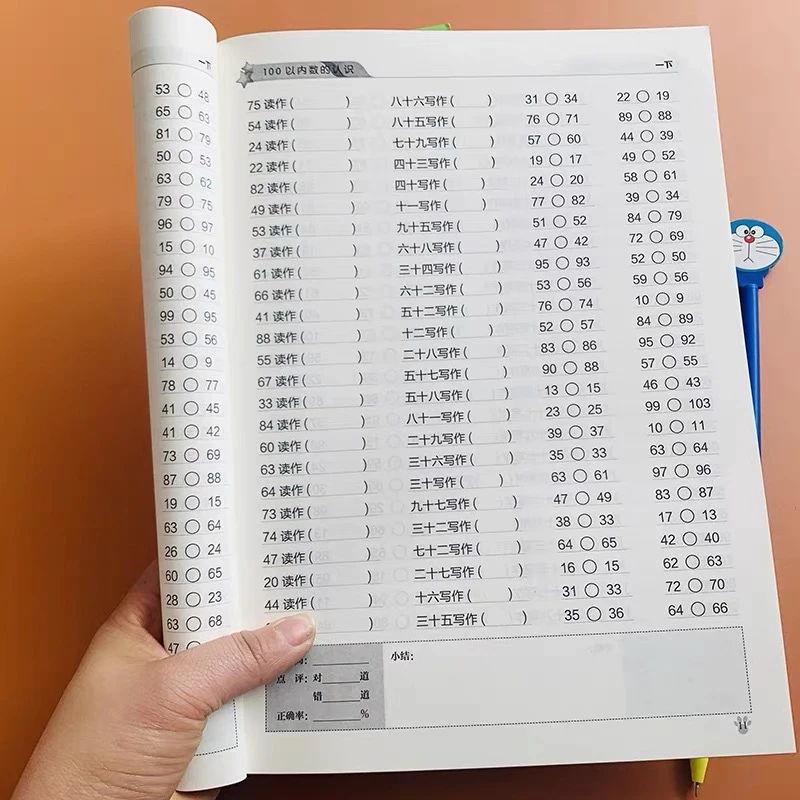 一下
53 ○ 48
65 ○ 63
81 ○ 79
50 ○ 53
63 ○ 62
79 ○ 75
96 ○ 97
15 ○ 10
94 ○ 95
50 ○ 45
99 ○ 95
53 ○ 56
14 ○ 9
78 ○ 77
41 ○ 45
41 ○ 42
73 ○ 69
87 ○ 88
19 ○ 15
63 ○ 64
26 ○ 24
60 ○ 65
28 ○ 23
63 ○ 68
47 ○
100 以内数的认识 一下
75 读作 ( ) 八十六写作 ( ) 31 ○ 34 22 ○ 19
54 读作 ( ) 八十五写作 ( ) 76 ○ 71 89 ○ 88
24 读作 ( ) 七十九写作 ( ) 57 ○ 60 44 ○ 39
22 读作 ( ) 四十三写作 ( ) 19 ○ 17 49 ○ 52
82 读作 ( ) 四十写作 ( ) 24 ○ 20 58 ○ 61
49 读作 ( ) 十一写作 ( ) 77 ○ 82 39 ○ 34
53 读作 ( ) 九十五写作 ( ) 51 ○ 52 84 ○ 79
37 读作 ( ) 六十八写作 ( ) 47 ○ 42 72 ○ 69
61 读作 ( ) 三十四写作 ( ) 95 ○ 93 52 ○ 50
66 读作 ( ) 六十二写作 ( ) 53 ○ 56 59 ○ 56
41 读作 ( ) 五十二写作 ( ) 76 ○ 74 10 ○ 9
88 读作 ( ) 十二写作 ( ) 52 ○ 57 84 ○ 89
55 读作 ( ) 二十八写作 ( ) 83 ○ 86 95 ○ 92
67 读作 ( ) 五十七写作 ( ) 90 ○ 88 57 ○ 55
33 读作 ( ) 五十八写作 ( ) 13 ○ 15 46 ○ 43
84 读作 ( ) 八十一写作 ( ) 23 ○ 25 99 ○ 103
60 读作 ( ) 二十九写作 ( ) 39 ○ 37 10 ○ 11
63 读作 ( ) 三十六写作 ( ) 35 ○ 33 63 ○ 64
64 读作 ( ) 三十写作 ( ) 63 ○ 61 97 ○ 96
73 读作 ( ) 九十七写作 ( ) 47 ○ 49 83 ○ 87
74 读作 ( ) 三十二写作 ( ) 38 ○ 33 17 ○ 13
47 读作 ( ) 七十二写作 ( ) 64 ○ 65 42 ○ 40
20 读作 ( ) 二十七写作 ( ) 16 ○ 15 62 ○ 63
44 读作 ( ) 十六写作 ( ) 31 ○ 33 72 ○ 70
) 三十五写作 ( ) 35 ○ 36 64 ○ 66
小结:
点 评: 对 道
错 道
正确率: %
11